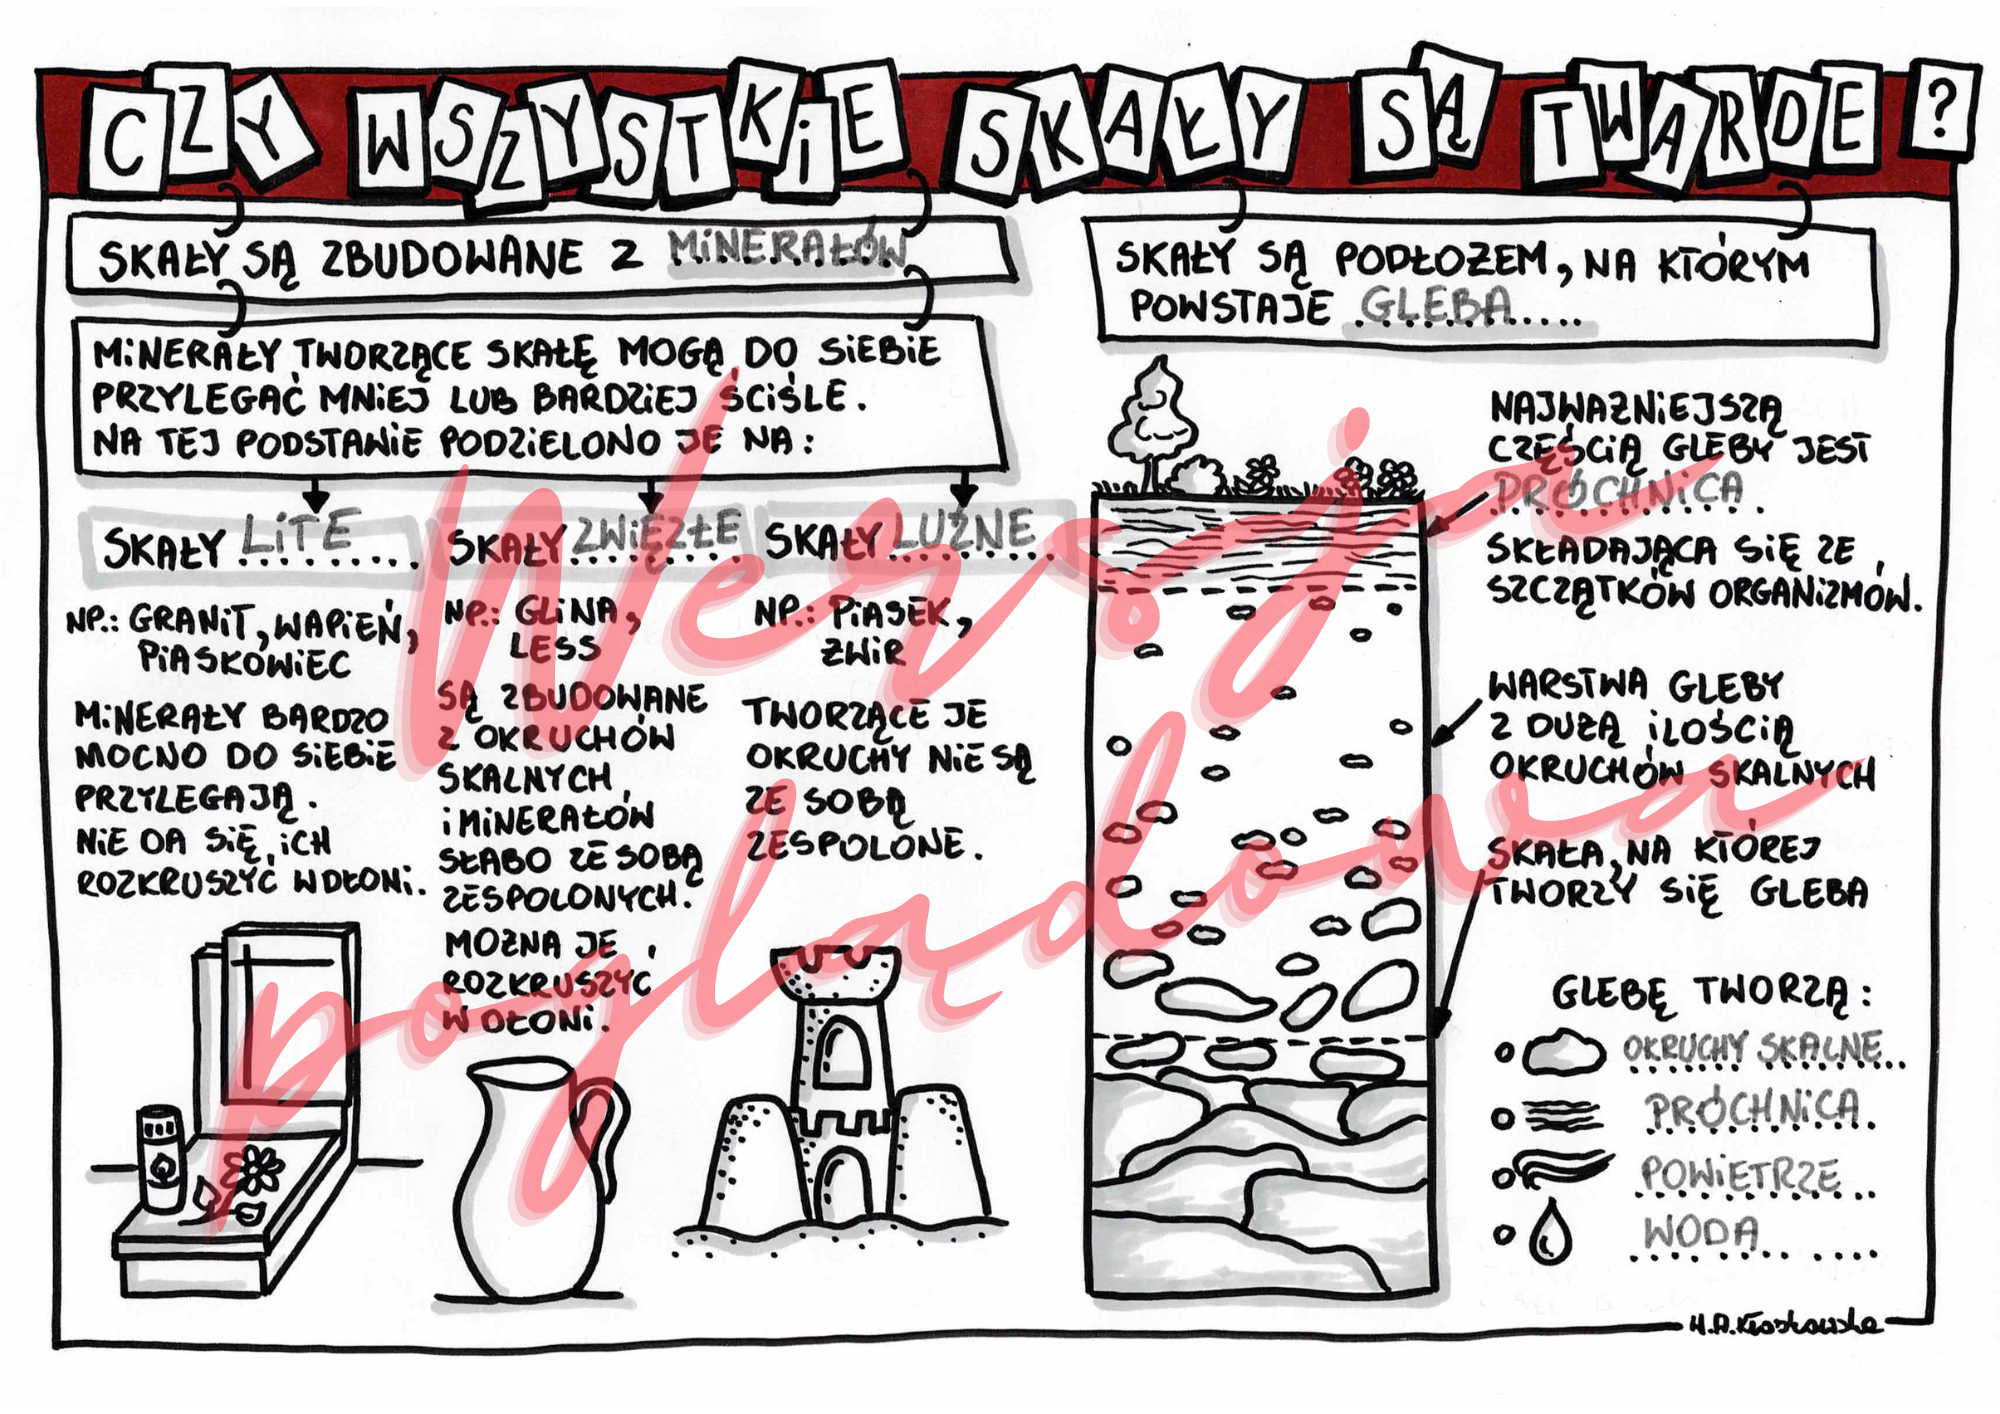 CZY WSZYSTKIE SKAŁY SĄ TWARDE?
SKAŁY SĄ ZBUDOWANE Z MINERAŁÓW
MINERAŁY TWORZĄCE SKAŁĘ MOGĄ DO SIEBIE
PRZYLEGAĆ MNIEJ LUB BARDZIEJ ŚCIŚLE.
NA TEJ PODSTAWIE PODZIELONO JE NA:
SKAŁY LITE
NP.: GRANIT, WAPIEŃ,
PIASKOWIEC
MINERAŁY BARDZO
MOCNO DO SIEBIE
PRZYLEGAJĄ.
NIE DA SIĘ ICH
ROZKRUSZYĆ W DŁONI.
SKAŁY ZWIĘZŁE
NP.: GLINA,
LESS
SĄ ZBUDOWANE
Z OKRUCHÓW
SKALNYCH
I MINERAŁÓW
SŁABO ZE SOBĄ
ZESPOLONYCH.
MOŻNA JE
ROZKRUSZYĆ
W DŁONI.
SKAŁY LUŹNE
NP.: PIASEK,
ŻWIR
TWORZĄCE JE
OKRUCHY NIE SĄ
ZE SOBĄ
ZESPOLONE.
SKAŁY SĄ PODŁOŻEM, NA KTÓRYM
POWSTAJE GLEBA
NAJWAŻNIEJSZĄ
CZĘŚCIĄ GLEBY JEST
PRÓCHNICA
SKŁADAJĄCA SIĘ ZE
SZCZĄTKÓW ORGANIZMÓW.
WARSTWA GLEBY
Z DUŻĄ ILOŚCIĄ
OKRUCHÓW SKALNYCH
SKAŁA, NA KTÓREJ
TWORZY SIĘ GLEBA
GLEBĘ TWORZĄ:
OKRUCHY SKALNE
PRÓCHNICA
POWIETRZE
WODA
H.A.Kłoskowska
Wersja
poglądowa